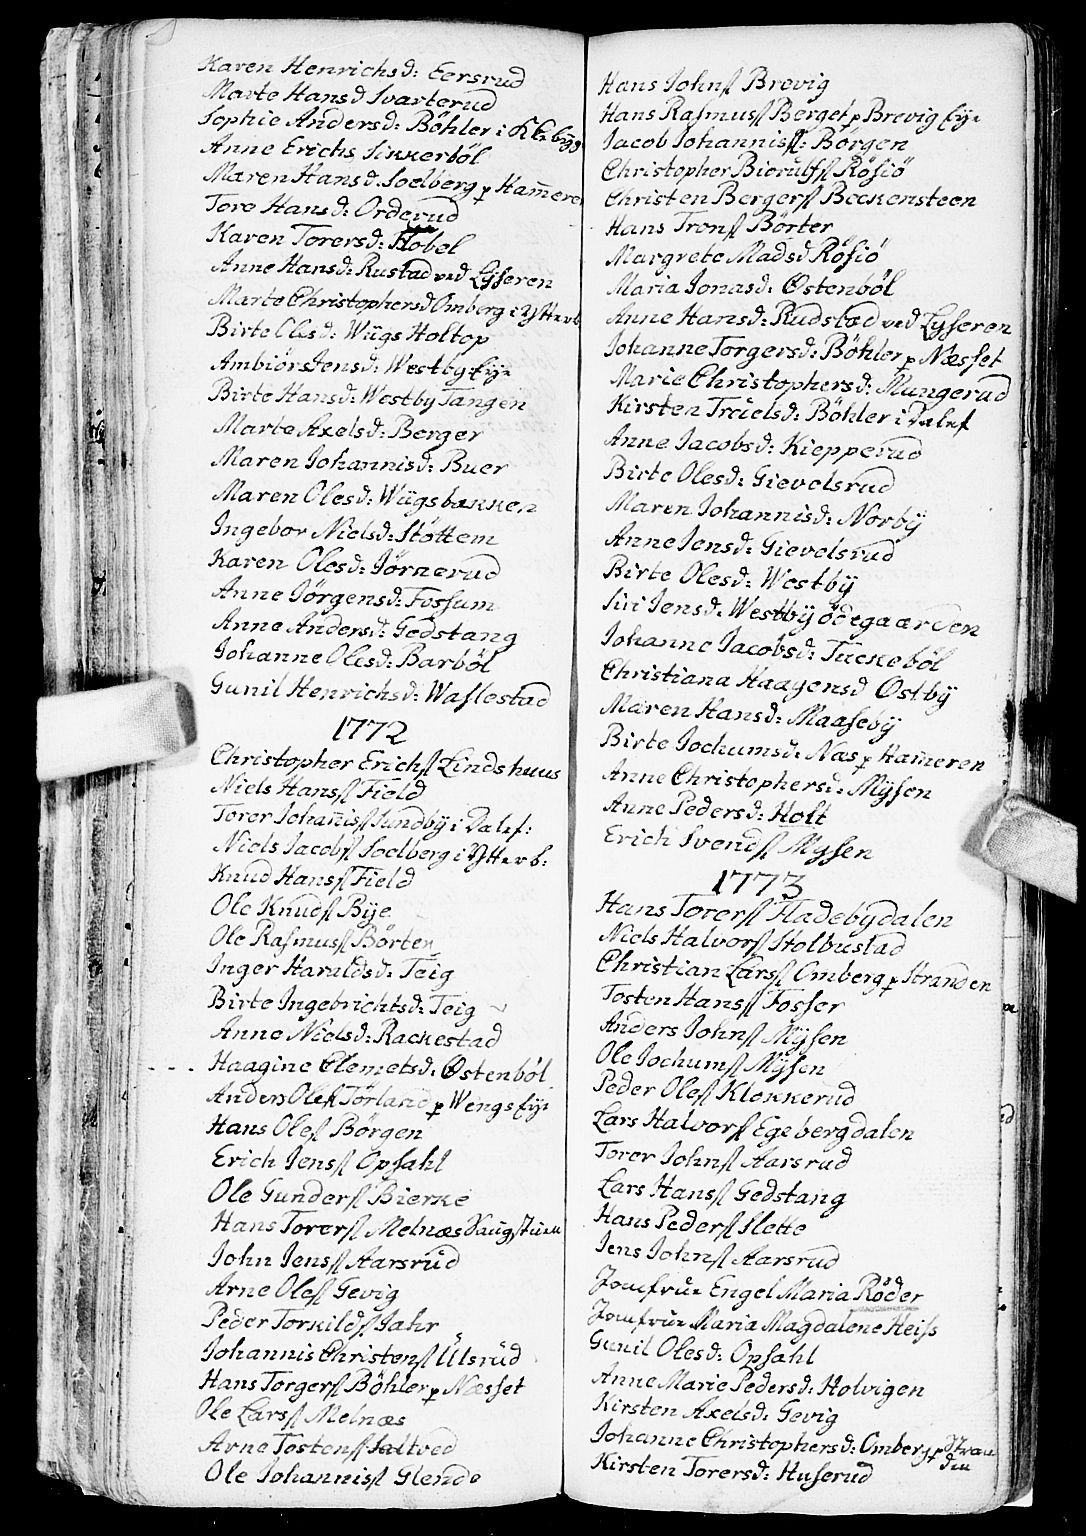 Karen Henrichsd: Eersrud
Marte Hansd Svarterud
Sophie Andersd: Böhler i Kr: bÿgd
Anne Erichs Sikkerböl
Maren Hansd: Soelberg p Ham̅eren
Tore Hansd: Orderud
Karen Torersd: Hobel
Anne Hansd: Rustad ved Lÿseren
Marte Christophersd Omberg i Ytterb
Birte Olesd: Wügs Holtop
Ambiörs Jensd: Westbÿ Eÿe
Birte Hansd: Westby Tangen
Marte Axelsd: Berger
Maren Johannisd: Buer
Maren Olesd: Wügsbækken
Ingebor Nielsd: Stöttem
Karen Olesd: Jörnerud
Anne Jörgensd: Fossum
Anne Andersd: Gedstang
Johanne Olesd: Barböl
Gunil Henrichsd: Waslestad
1772
Christopher Erichs∫ Lindshuus
Niels Hans∫ Field
Torer Johan̅is∫ Sundbÿ i Dalef:
Niels Jacobs∫ Soelberg i Ytterb:
Knud Hans∫ Field
Ole Knuds∫ Bÿe
Ole Rasmus∫ Börter
Inger Haraldsd: Teig
Birte Ingebrichtsd: Teig
Anne Nielsd: Rackestad
Haagine Clemetsd: Østenböl
Anders Oles∫ Törland p Wengs Eÿe
Hans Oles∫ Börgen
Erich Jens∫ Opsahl
Ole Gunders∫ Bierke
Hans Torers∫ Melnæs Saugstuen
John Jens∫ Aarsrud
Arne Oles∫ Gevig
Peder Torkilds∫ Jahr
Johannis Christens∫ Ulsrud
Hans Torgers∫ Böhler p Næsset
Ole Lars∫ Melnæs
Arne Tostens∫ Saltved
Ole Johannis∫ Glende
Hans Johns∫ Brevig
Hans Rasmus∫ Berget p Brevig Eÿe
Jacob Johannis∫: Börgen
Christopher Bierulfs∫ Rösiö
Christen Bergers∫ Beckensteen
Hans Trons∫ Börter
Margrete Madsd Rösiö
Maria Jonasd: Østenböl
Anne Hansd: Rudstad ved Lÿseren
Johanne Torgersd: Böhler p Næsset
Marie Christophersd: Mungerud
Kirsten Troielsd: Böhler i Dalef
Anne Jacobsd: Kiepperud
Birte Olesd: Gievelsrud
Maren Johannisd: Norbÿ
Anne Jensd: Gievelsrud
Birte Olesd: Westbÿ
Siri Jensd: Westbÿ ödegaarden
Johanne Jacobsd: Tuckeböl
Christiana Haagensd Østbÿ
Maren Hansd: Maasebÿ
Birte Jochumsd: Næs p Ham̅eren
Anne Christophersd: Mÿsen
Anne Pedersd: Holt
Erich Svends∫ Mÿsen
1773
Hans Torers∫ Hadebÿdalen
Niels Halvors∫ Holbustad
Christian Lars∫ Omberg p Stranden
Tosten Hans∫ Fosser
Anders Johns∫ Mÿsen
Ole Jochums∫ Mÿsen
Peder Oles∫ Klokkerud
Lars Halvors∫ Egebergdalen
Torer Johns∫ Aarsrud
Lars Hans∫ Gedstang
Hans Peders∫ Slette
Jens Johns∫ Aarsrud
Jomfrue Engel Maria Röder
Jomfrue Maria Magdalene Heiss
Gunil Olesd: Opsahl
Anne Marie Pedersd: Holvigen
Kirsten Axelsd: Gevig
Johanne Christophersd: Omberg p Stranden
Kirsten Torersd: Huserud